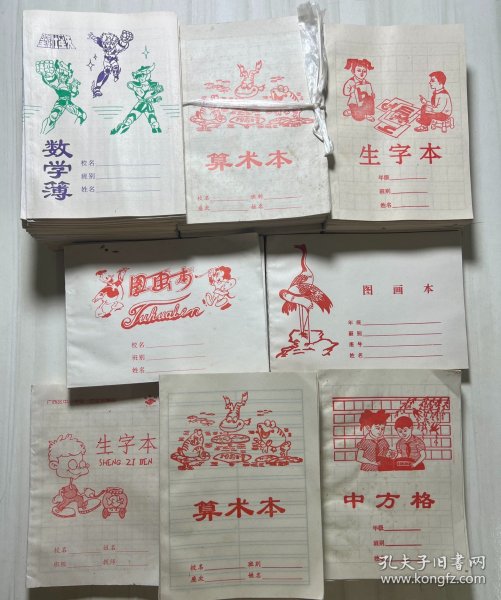 数学簿
校名
班别
姓名
算术本
校名 班别
座次 姓名
生字本
年级
班别
姓名
图画本
Tuhuaben
校名
班别
姓名
图画本
年级
班别
座号
姓名
生字本
SHENG ZI BEN
校名 姓名
班级 教师
算术本
校名 班别
座次 姓名
中方格
年级
班别
姓名
孔夫子旧书网
www.kongfz.com